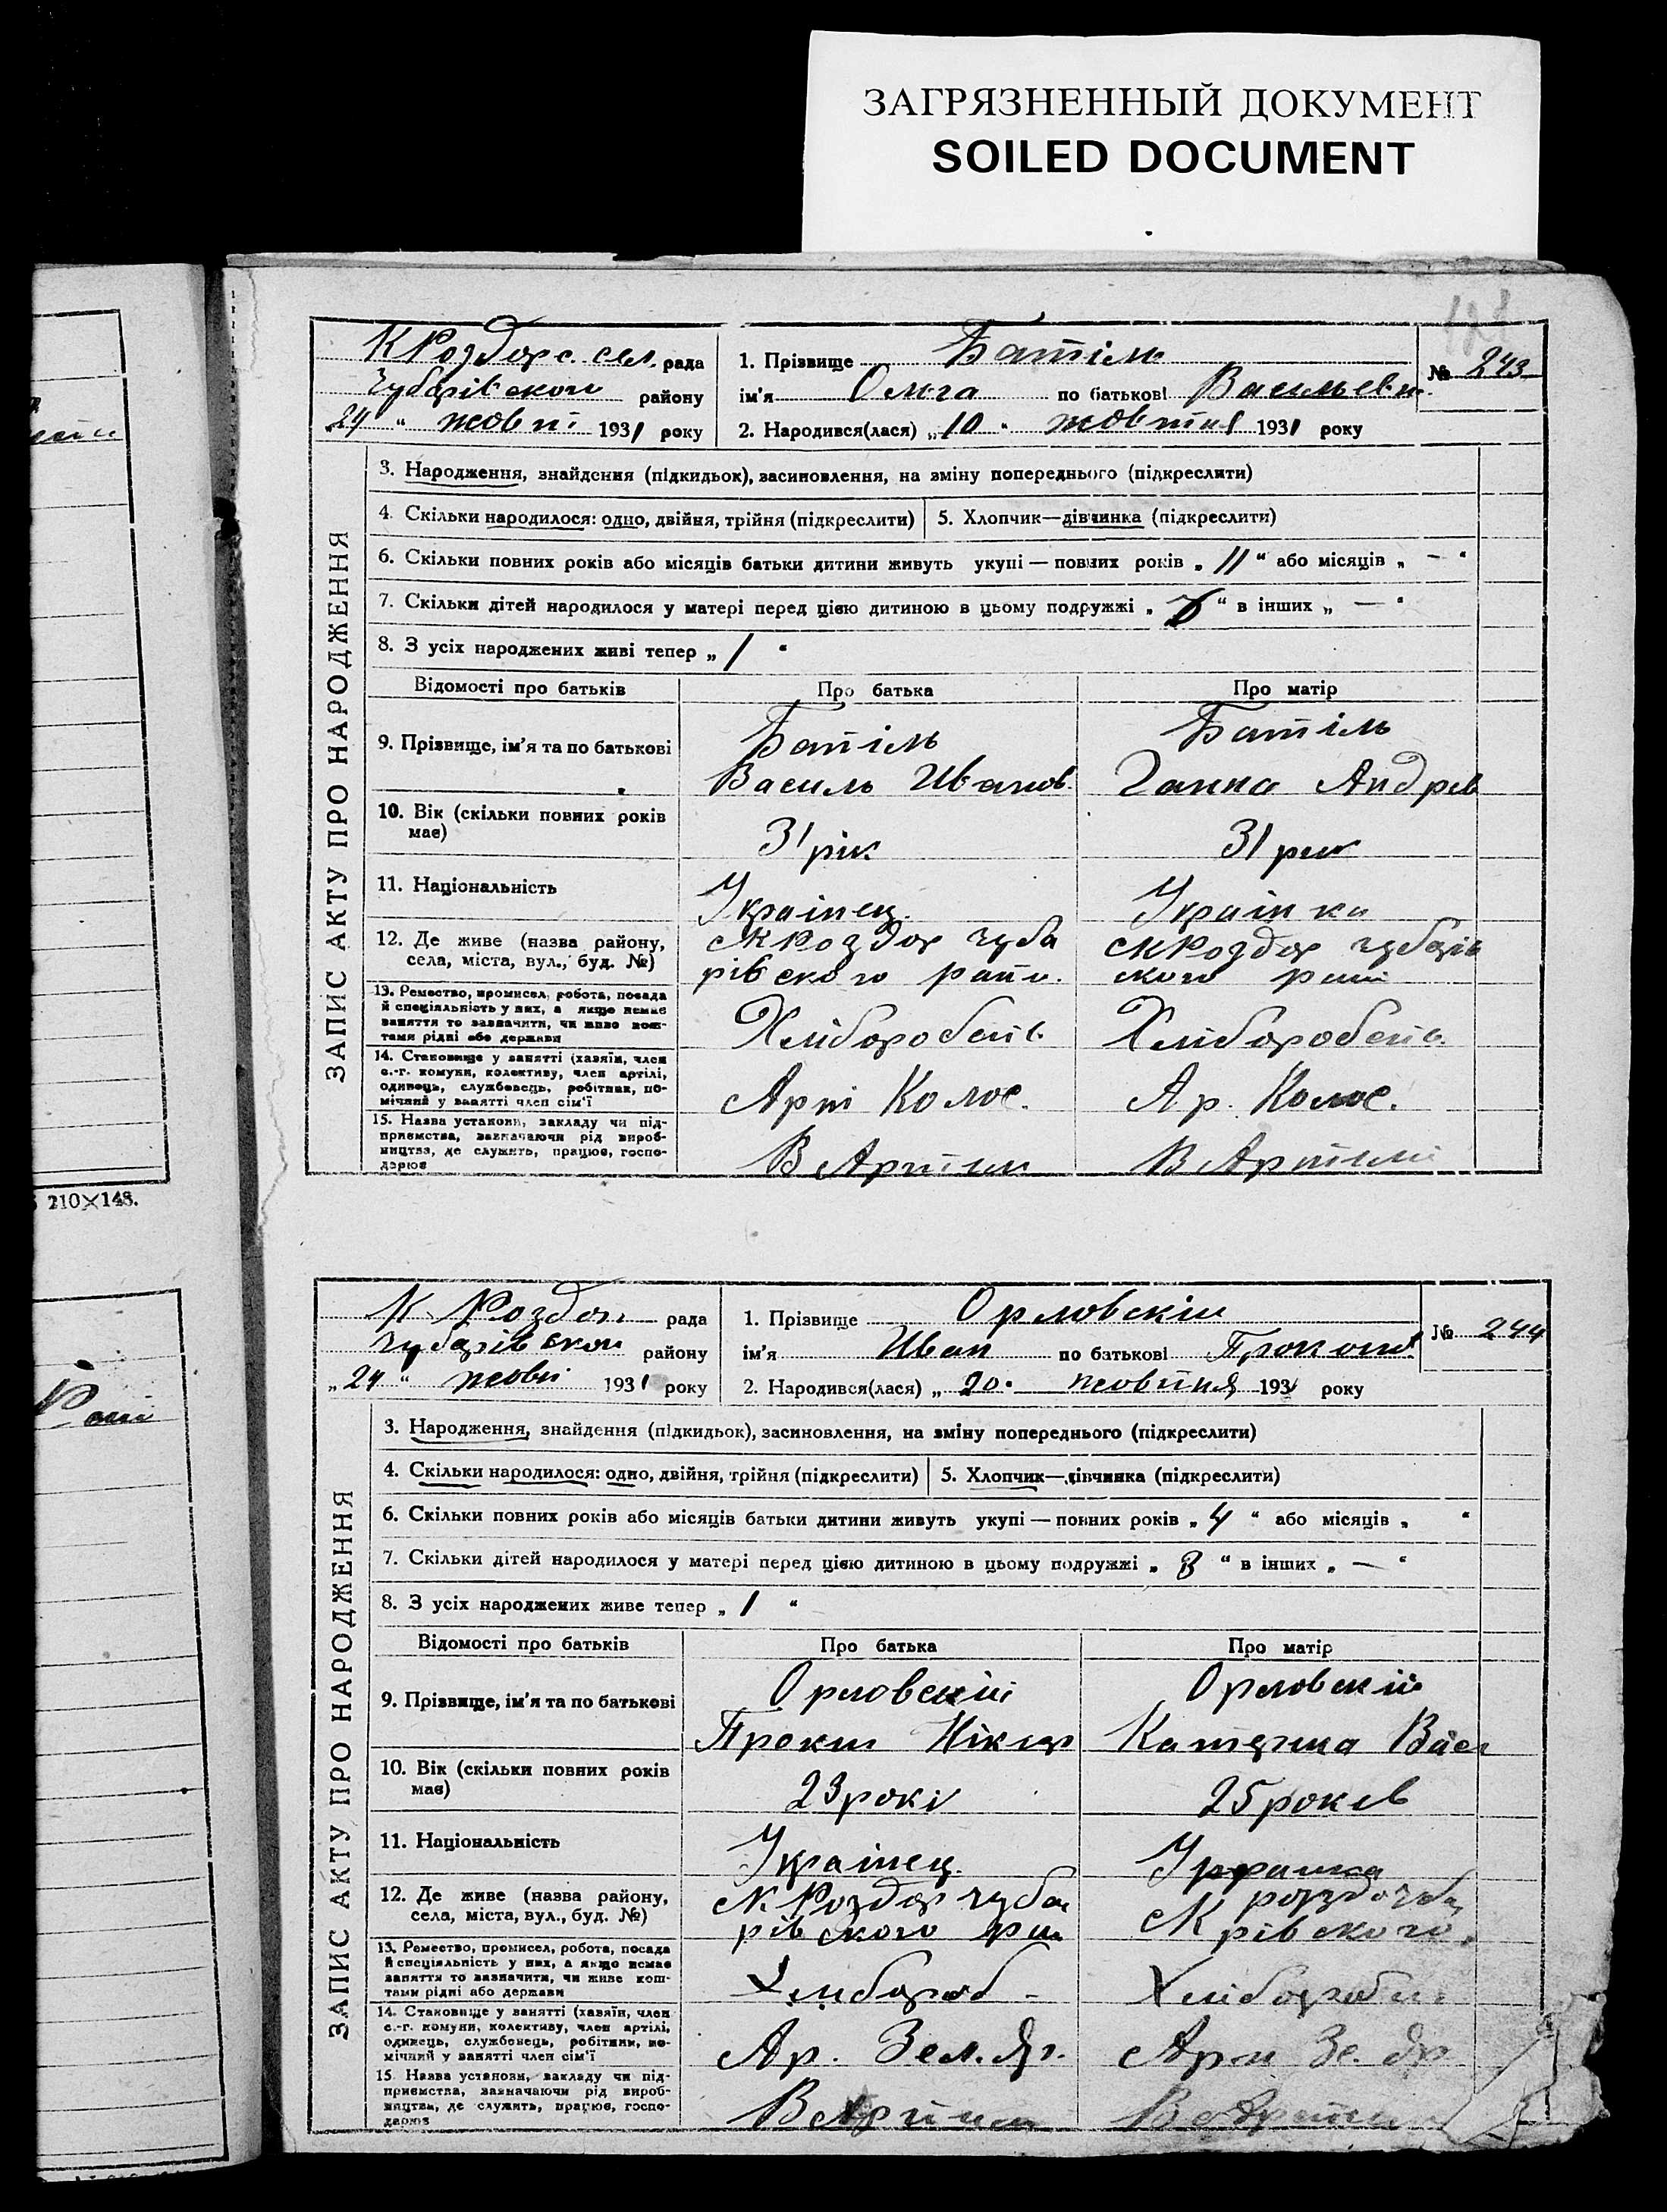 ЗАГРЯЗНЕННЫЙ ДОКУМЕНТ
SOILED DOCUMENT
210×148.
К Роздорс. сел. рада
Чубарівскои району
24 " жовт 1931 року
1. Прізвище Батіль
ім'я Ольга по батькові Васильевн.
2. Народився(лася) „ 10 " жовтня 1931 року
№ 243
ЗАПИС АКТУ ПРО НАРОДЖЕННЯ
3. Народження, знайдення (підкидьок), засиновлення, на зміну попереднього (підкреслити)
4. Скільки народилося: одно, двійня, трійня (підкреслити) 5. Хлопчик—дівчинка (підкреслити)
6. Скільки повних років або місяців батьки дитини живуть укупі — повних років „ 11 " або місяців „ — "
7. Скільки дітей народилося у матері перед цією дитиною в цьому подружжі „ " в інших „ — "
8. З усіх народжених живі тепер „ 1 "
Відомості про батьків Про батька Про матір
9. Прізвище, ім'я та по батькові
Батіль Батіль
Василь Иванов. Ганна Андрев
10. Вік (скільки повних років має)
31 рік 31 рик
11. Національність
Українец. Українка
12. Де живе (назва району, села, міста, вул., буд. №)
с К Роздор Чуба с К Роздор Чубарів
рівского рати. ского
13. Ремество, промисел, робота, посада й спеціяльність у них, а якщо немає заняття то зазначити, чи живе коштами рідні або держави
Хліборобств. Хліборобств.
14. Становище у занятті (хазяїн, член с.-г. комуни, колективу, член артілі, одинець, службовець, робітник, помічний у занятті член сім'ї
Арт Колос. Ар. Колос.
15. Назва установи, закладу чи підприємства, зазначаючи рід виробництва, де служить, працює, господарює
В Артили В Артили
К Роздор рада
Чубарівскои району
„ 24 " жовт 1931 року
1. Прізвище Орловскій
ім'я Иван по батькові
2. Народився(лася) „ 20 " жовтня 1931 року
№ 244
ЗАПИС АКТУ ПРО НАРОДЖЕННЯ
3. Народження, знайдення (підкидьок), засиновлення, на зміну попереднього (підкреслити)
4. Скільки народилося: одно, двійня, трійня (підкреслити) 5. Хлопчик—дівчинка (підкреслити)
6. Скільки повних років або місяців батьки дитини живуть укупі — повних років „ 4 " або місяців „ "
7. Скільки дітей народилося у матері перед цією дитиною в цьому подружжі „ 3 " в інших „ — "
8. З усіх народжених живе тепер „ 1 "
Відомості про батьків Про батька Про матір
9. Прізвище, ім'я та по батькові
Орловский Орловский
Прокип Нікиф Катерина Васи
10. Вік (скільки повних років має)
23 рокі 25 роков
11. Національність
Українец.
12. Де живе (назва району, села, міста, вул., буд. №)
с К. Роздор Чуба
рівского рівского.
13. Ремество, промисел, робота, посада й спеціяльність у них, а якщо немає заняття то зазначити, чи живе коштами рідні або держави
Хлібороб - Хлібороб
14. Становище у занятті (хазяїн, член с.-г. комуни, колективу, член артілі, одинець, службовець, робітник, помічний у занятті член сім'ї
Ар. Зел. Яр. Арти Зе. Яр
15. Назва установи, закладу чи підприємства, зазначаючи рід виробництва, де служить, працює, господарює
В Артили В Артили